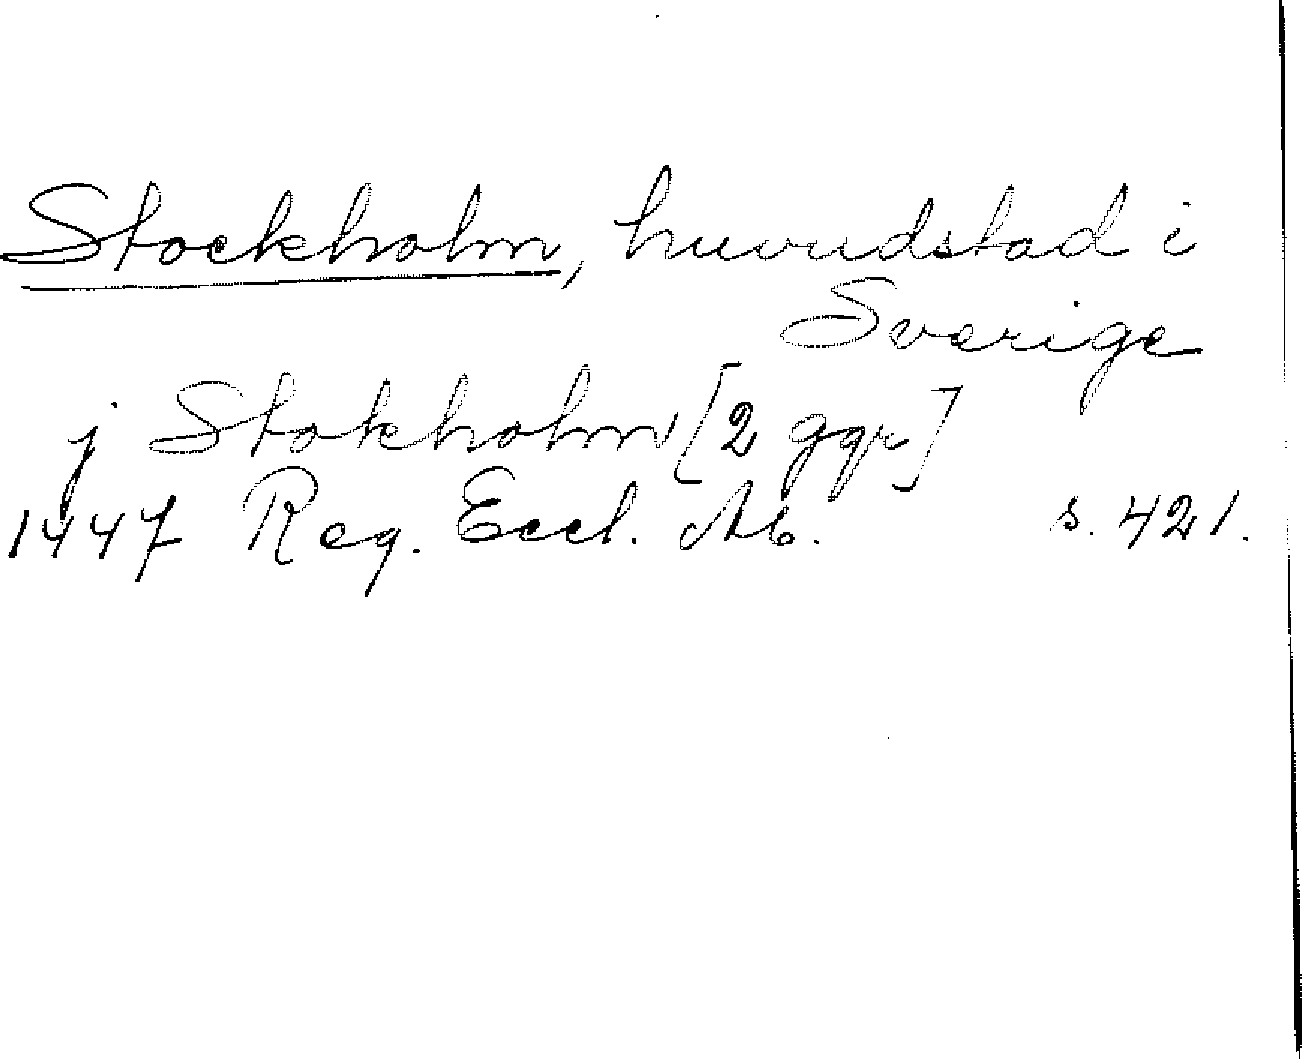 Stockholm, huvudstad i
Sverige
j Stokholm [2 ggr]
1447 Reg. Eccl. Ab. s. 421.